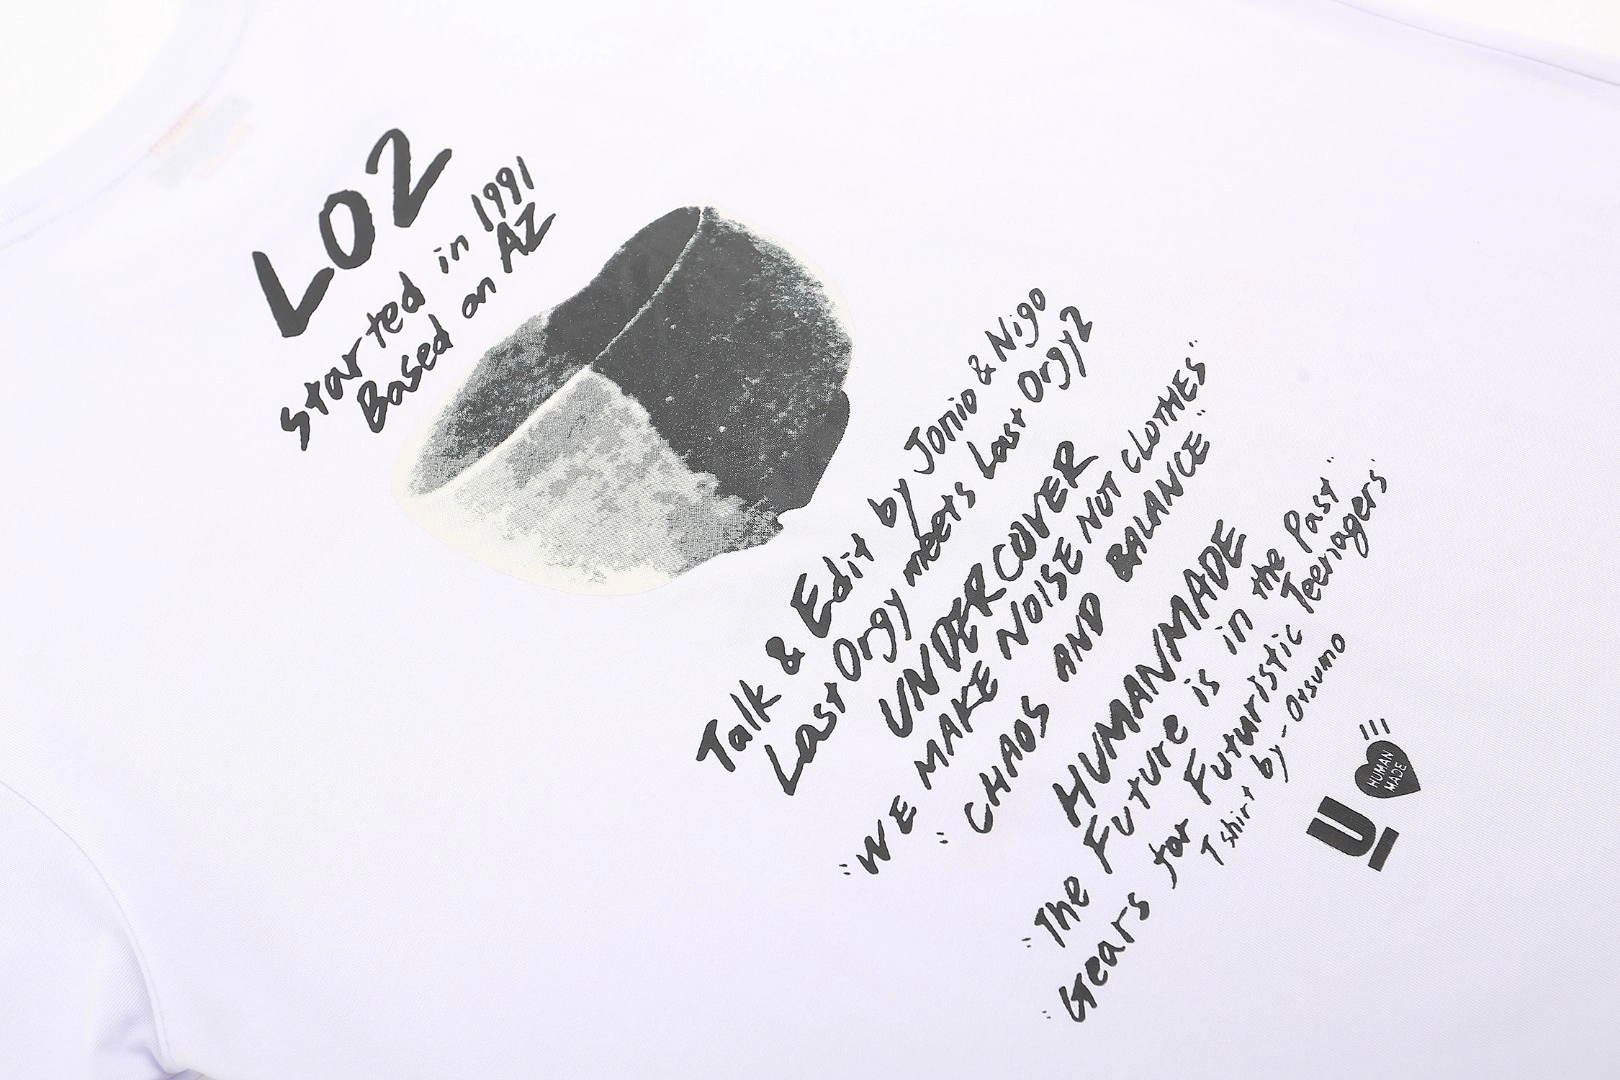 LO2
started in 1991
Based on AZ
Talk & Edit by Jonio & Nigo
Last Orgy meets Last Orgy2
UNDERCOVER
"WE MAKE NOISE NOT CLOTHES"
"CHAOS AND BALANCE"
HUMANMADE
"The Future is in the Past"
"Gears for Futuristic Teenagers"
Tshirt by - Otsumo
U
HUMAN
MADE